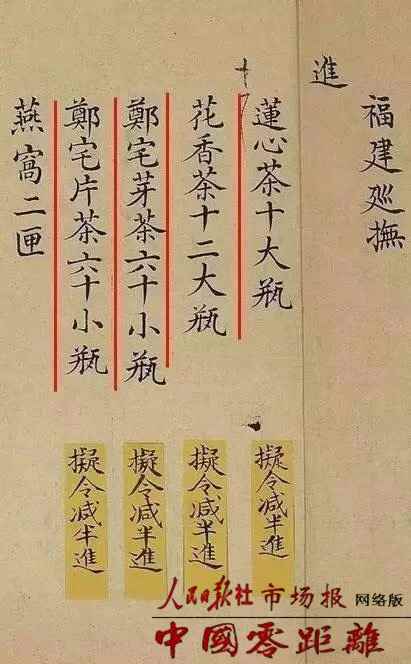 福建廵撫
進
蓮心茶十大瓶
花香茶十二大瓶
鄭宅芽茶六十小瓶
鄭宅片茶六十小瓶
燕窩二匣
擬令减半進
擬令减半進
擬令减半進
擬令减半進
人民日报社市场报 网络版
中國零距離